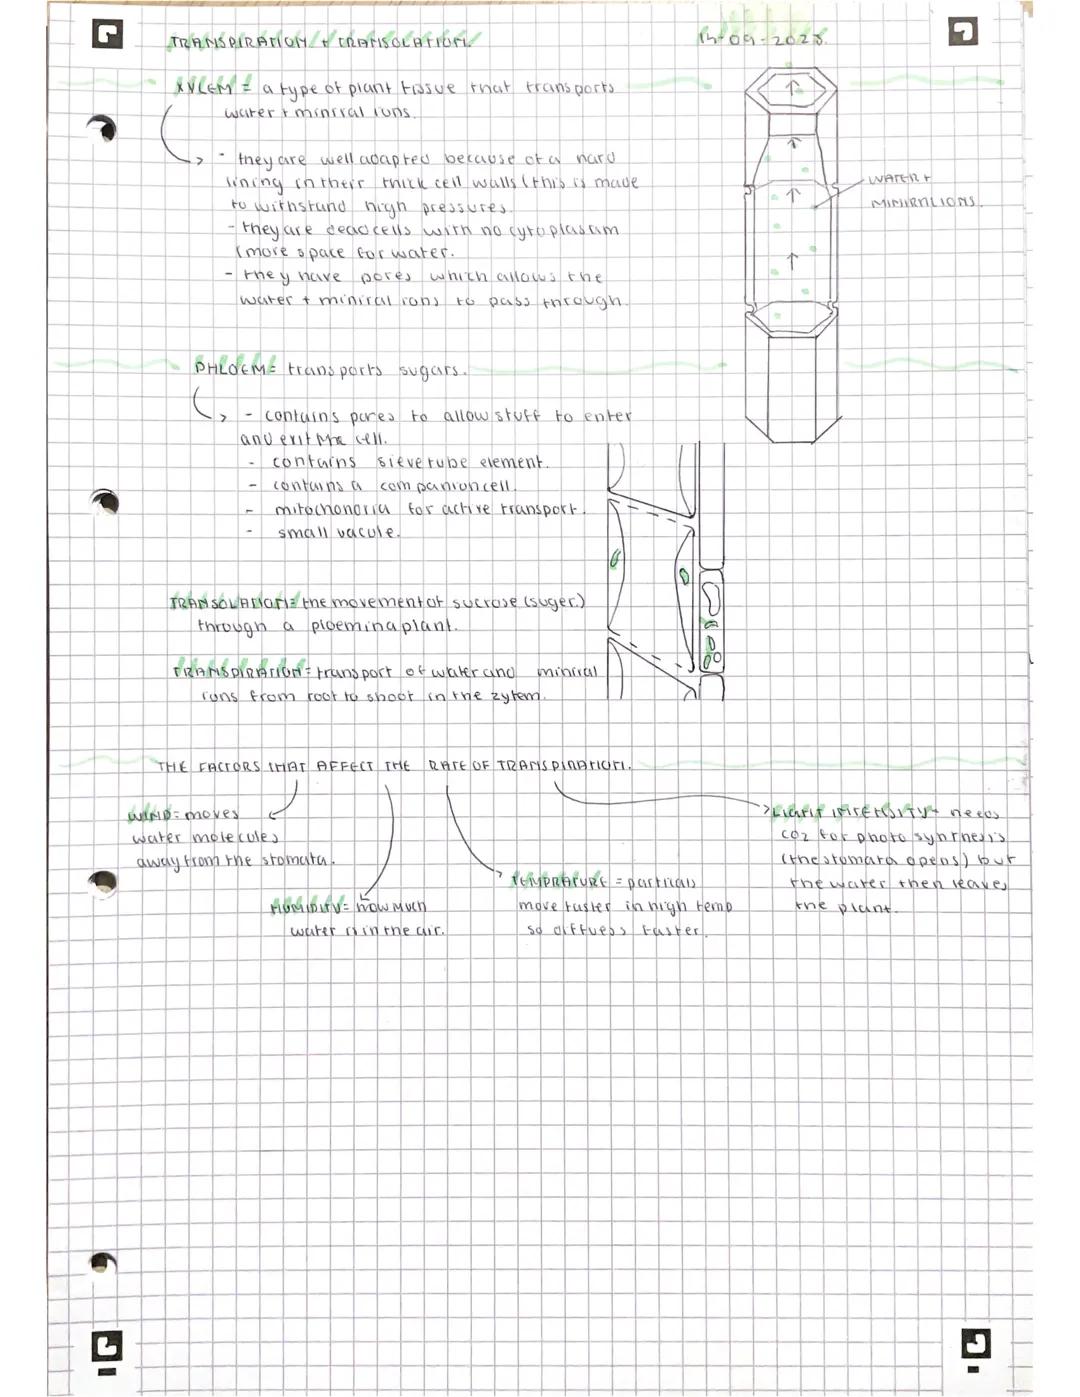 TRANSPIRATION + TRANSOLATION.
XYLEM = a type of plant tissue that transports
water + miniral ions.
- they are well adapted because of a hard
lining in their thick cell walls (this is made
to withstand high pressures.
- they are dead cells with no cytoplasum
(more space for water.
- they have pores which allows the
water + miniral ions to pass through.
WATER +
MINIRAL IONS.
PHLOEM = transports sugars.
- contains pores to allow stuff to enter
and exit the cell.
- contains sieve tube element.
- contains a companion cell.
- mitochondria for active transport.
- small vacule.
TRANSOLATION = the movement of sucrose (suger)
through a ploem in a plant.
TRANSPIRATION = transport of water and miniral
ions from root to shoot in the zylem.
THE FACTORS THAT AFFECT THE RATE OF TRANSPIRATION.
WIND = moves
water molecules
away from the stomata.
HUMIDITY = how much
water is in the air.
TEMPRATURE = particals
move faster in high temp
so diffuess faster.
LIGHT INTENSITY = needs
CO2 for photosynthesis
(the stomata opens) but
the water then leaves
the plant.